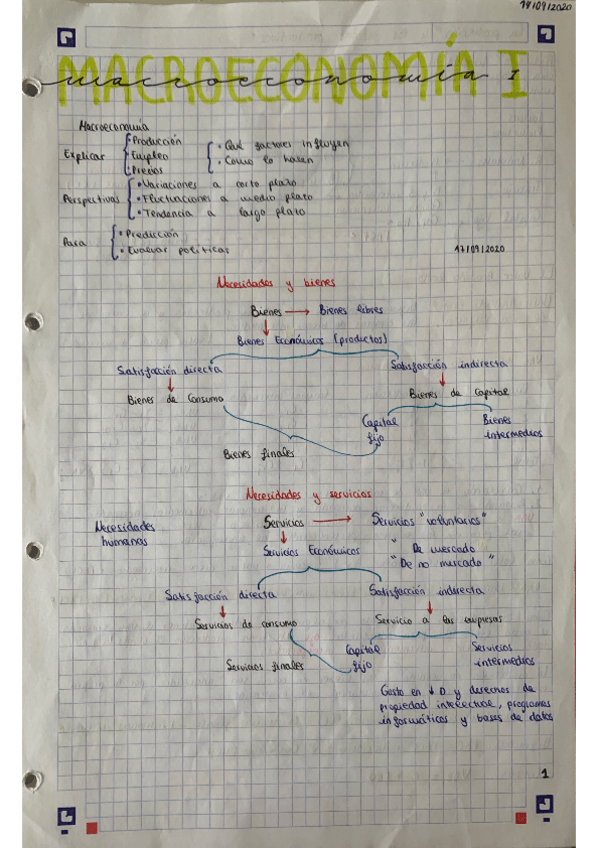 14/09/2020
MACROECONOMÍA I
macroeconomía
Macroeconomía
Explicar
Producción
Empleo
Precios
• Qué factores influyen
• Como lo hacen
Perspectivas
• Variaciones a corto plazo
• Fluctuaciones a medio plazo
• Tendencia a largo plazo
Para
• Predicción
• Evaluar políticas
17/09/2020
Necesidades y bienes
Bienes → Bienes libres
Bienes Económicos (productos)
Satisfacción directa
Satisfacción indirecta
Bienes de consumo
Bienes de Capital
Capital fijo
Bienes intermedios
Bienes finales
Necesidades y servicios
Necesidades humanas
Servicios → Servicios "voluntarios"
Servicios Económicos
" De mercado
" De no mercado "
Satisfacción directa
Satisfacción indirecta
Servicios de consumo
Servicio a las empresas
Capital fijo
Servicios intermedios
Servicios finales
Gasto en I+D y derechos de
propiedad intelectual, programas
informáticos y bases de datos
1